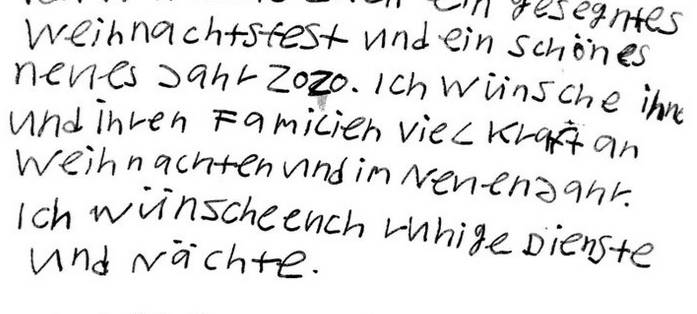 ein gesegntes
Weihnachtsfest und ein schönes
neues Jahr 2020. Ich wünsche ihne
und ihren Familien viel Kraft an
Weihnachten und im Neuenjahr.
Ich wünsche euch ruhige Dienste
und Nächte.